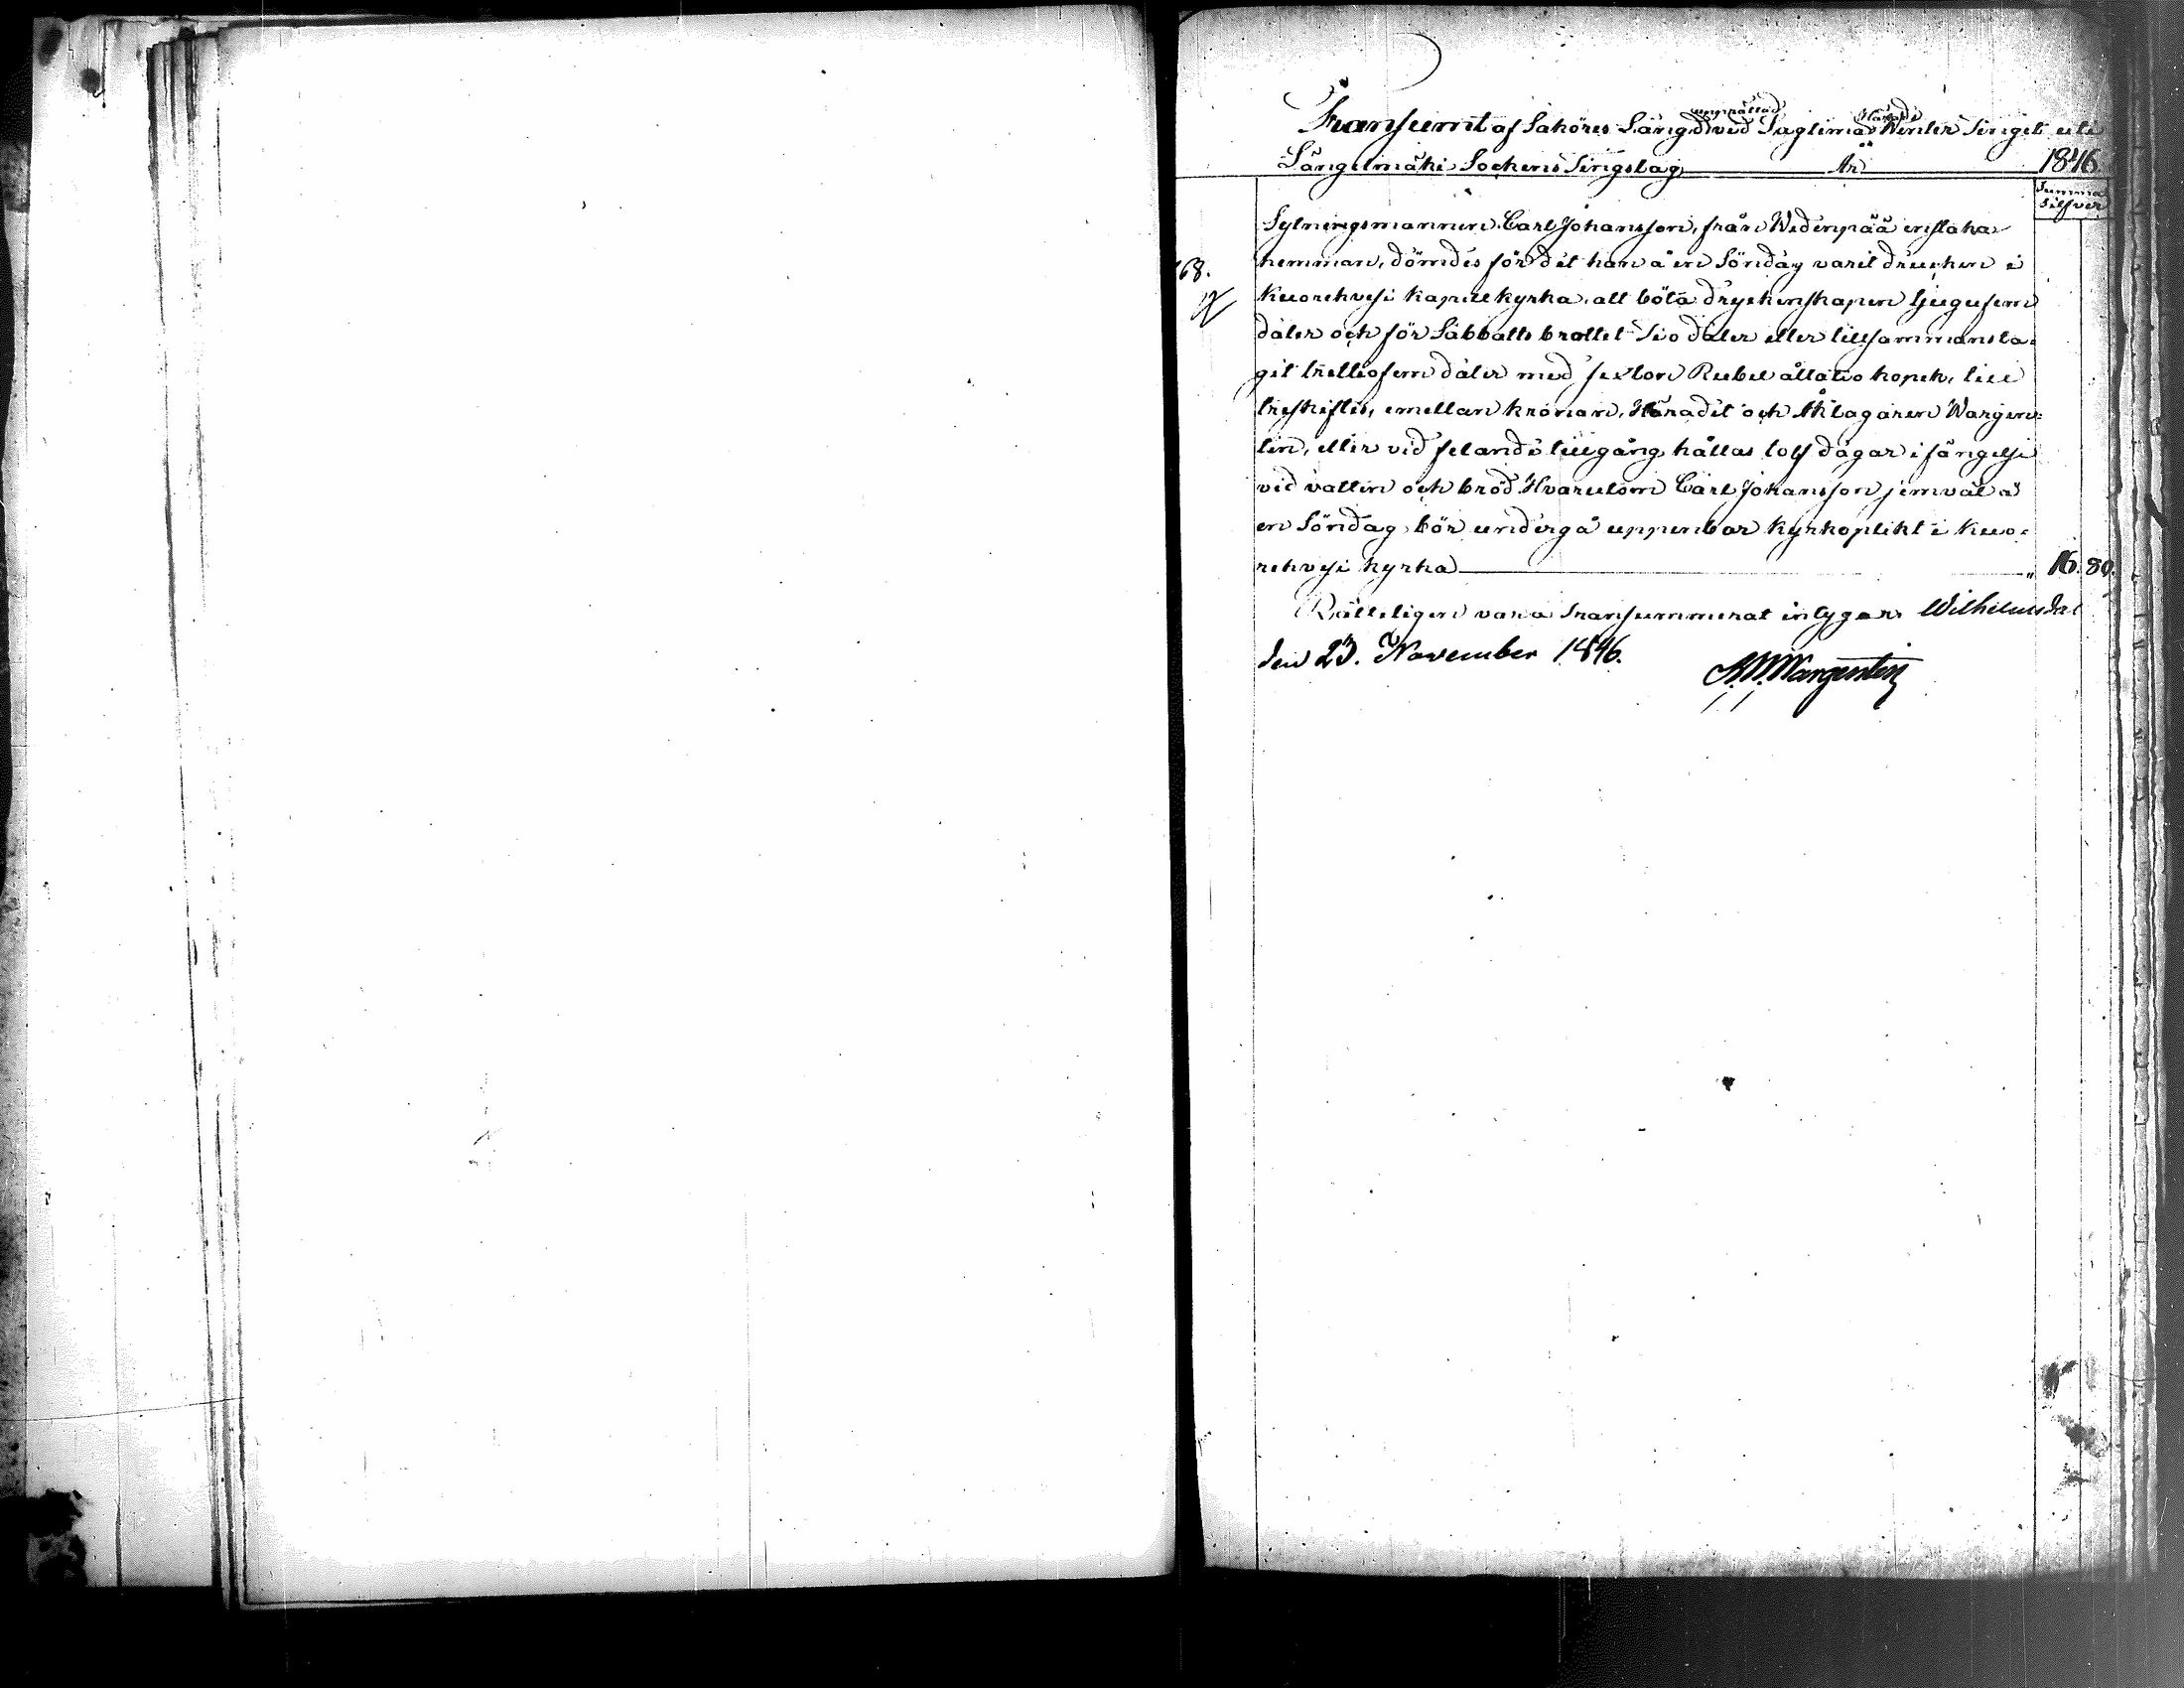 Transumt af Saköres Längd upprättad vid Lagtima Härads Winter Tinget uti
Längelmäki Sockens Tingslag År 1846.
Summa
Silfver
Sytningsmannen Carl Johansson, från Wedenpää enstaka
168. hemman, dömdes för det han å en Söndag varit drucken i
Kuorehvesi Kapell kyrka, att böta dryckenskapen tjugufem
daler och för Sabbatts brottet Tio daler eller tillsammansta-
git trettiofem daler med sexton Rubel åttatio kopek, till
treskiftes, emellan kronan, Häradet och Åklagaren Wargen-
tin, eller vid felande tillgång hållas tolf dagar i fängelse
vid vatten och bröd. Hvarutom Carl Johansson jemväl å
en Söndag bör undergå uppenbar Kyrkoplikt i Kuo-
rehvesi kyrka " 16. 80.
Rätteligen vara Transummerat intygar. Wilhelmsdal
den 23. November 1846.
A.W. Wargentin